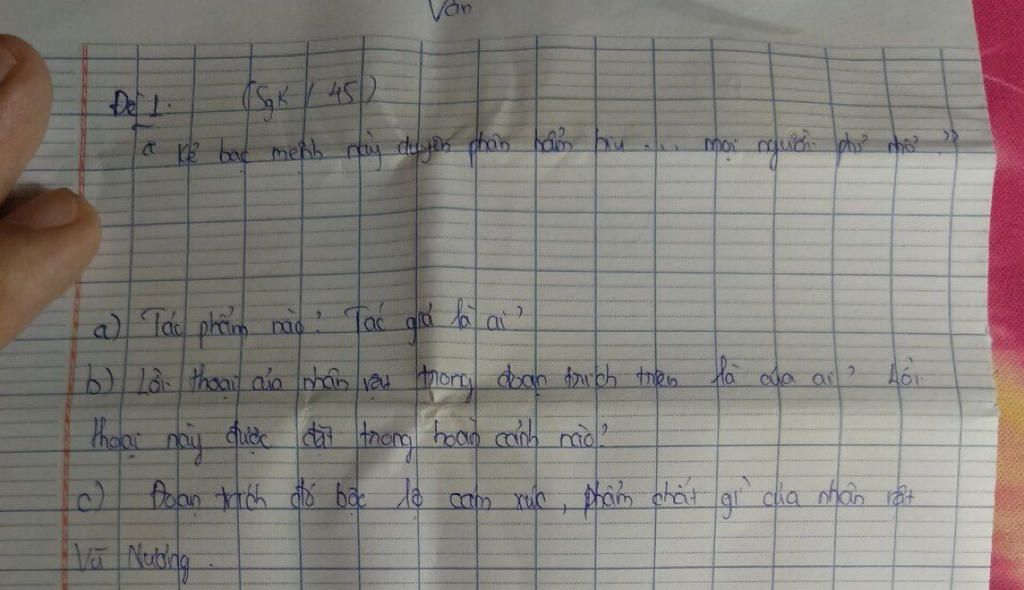 Văn
Đề 1. (Sgk / 45)
" Kẻ bạc mệnh này duyên phận hẩm hiu ... mọi người phỉ nhổ."
a) Tác phẩm nào? Tác giả là ai?
b) Lời thoại của nhân vật trong đoạn trích trên là của ai? Lời
thoại này được đặt trong hoàn cảnh nào?
c) Đoạn trích đó bộc lộ cảm xúc, phẩm chất gì của nhân vật
Vũ Nương.